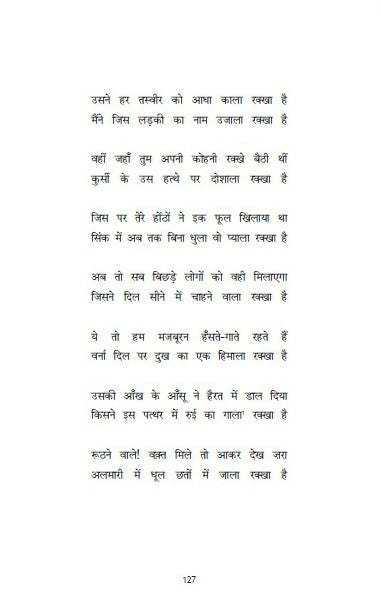 उसने हर तस्वीर को आधा काला रक्खा है
मैंने जिस लड़की का नाम उजाला रक्खा है
वहीं जहाँ तुम अपनी कोहनी रक्खे बैठी थीं
कुर्सी के उस हत्थे पर दोशाला रक्खा है
जिस पर तेरे होंठों ने इक फूल खिलाया था
सिंक में अब तक बिना धुला वो प्याला रक्खा है
अब तो सब बिछड़े लोगों को वही मिलाएगा
जिसने दिल सीने में चाहने वाला रक्खा है
ये तो हम मजबूरन हँसते-गाते रहते हैं
वर्ना दिल पर दुख का एक हिमाला रक्खा है
उसकी आँख के आँसू ने हैरत में डाल दिया
किसने इस पत्थर में रुई का गाला¹ रक्खा है
रूठने वाले! वक़्त मिले तो आकर देख जरा
अलमारी में धूल छतों में जाला रक्खा है
127